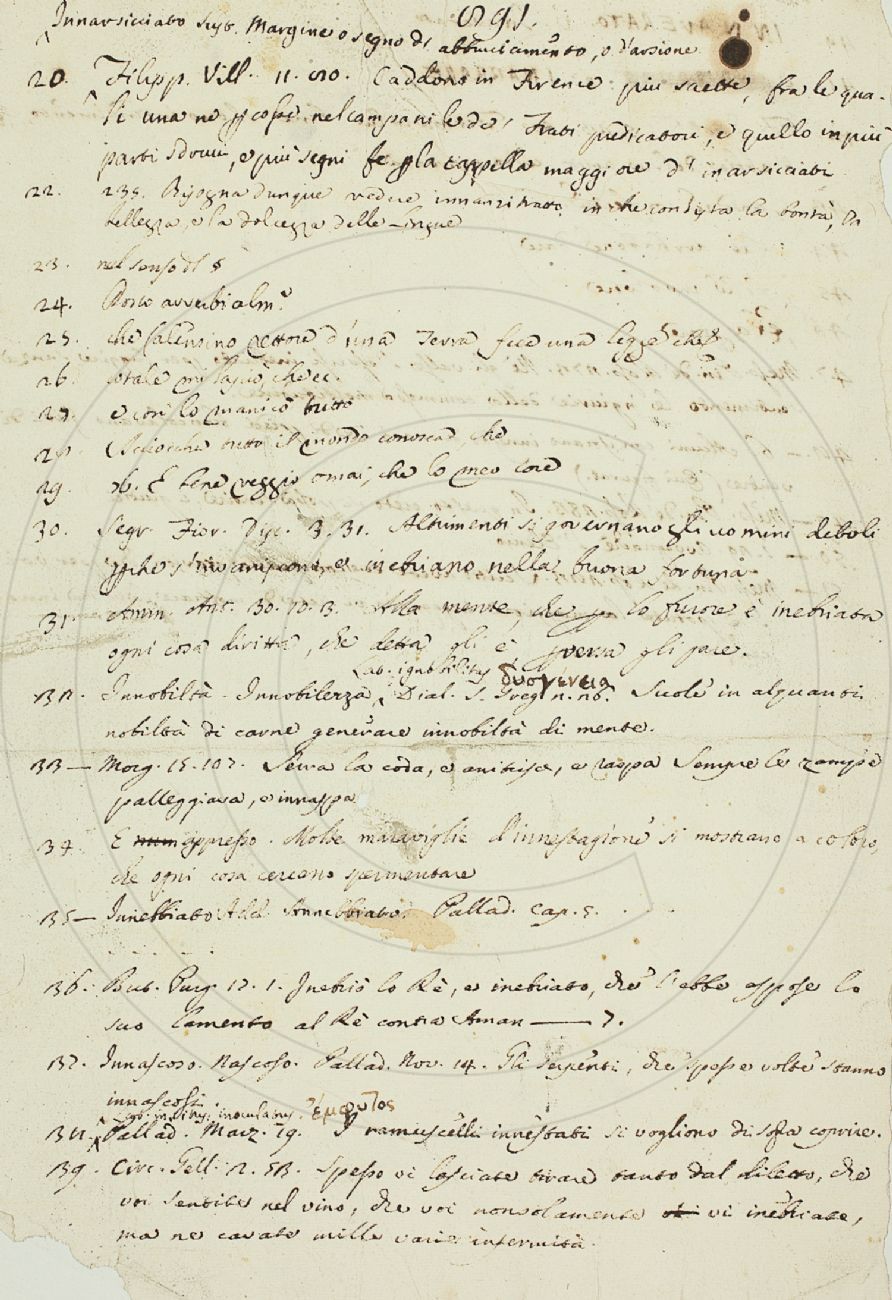 891.
Innarsicciato sust. Margine o segno di abbruciamento, o d'arsione
20. Filipp. Vill. 11. 80. Caddono in Firenze più saette, fra le qua-
li una ne pcosse nel campanile de' Frati predicatori, e quello in più
parti sdrucì, e più segni fe p la cappella maggiore d' inarsicciati
22. 235. Bisogna dunque vedere innanzi tratto in che consista la bontà, la
bellezza, e la dolcezza delle Lingue
23. nel senso di §
24. Posto avverbialm.e
25. che Rettore d'una Terra fece una legge che
26. cotale mi lasciò, che ec.
27. e così lo manicò tutto
28. Sicchè tutto il mondo conosca, che
29. 36. E bene veggio omai, che lo meo core
30. Segr. Fior. Disc. 3. 31. Altrimenti si governano gli uomini deboli
pche s' invaniscono, e inebriano nella buona fortuna
31. Amm. Ant. 30. 10. 3. Alla mente, che p lo furore è inebriata
ogni cosa diritta, che detta gli è pversa gli pare.
Lat. ignobilitas δυσγένεια
32. Innobiltà. Innobilezza, Dial. S. Greg. Suole in alquanti
nobiltà di carne generare innobiltà di mente.
33 — Morg. 15. 107. Serra la coda, e anitrisce, e raspa Sempre le zampe
palleggiava, e innaspa
34. E appresso. Molte maraviglie d'innestagione si mostrano a coloro,
che ogni cosa cercano spermentare
35 — Innebbiato Add. Annebbiato. Pallad. cap. 5. . . .
. . . . .
36. But. Purg. 17. 1. Inebriò lo Rè, e inebriato, che l'ebbe esspose lo
suo lamento al Rè contra Aman — 7.
37. Innascoso. Nascoso. Pallad. Nov. 14. Gli serpenti, che spesse volte stanno
innascosi.
Lat. insitus, inoculatus. ἔμφυτος
38. Pallad. Marz. 19. I ramuscelli innestati si vogliono di sopra coprire.
39. Circ. Gell. 2. 53. Spesso vi lasciate tirare tanto dal diletto, che
voi sentite nel vino, che voi nonsolamente vi inebriate,
ma ne cavate mille varie infermità.